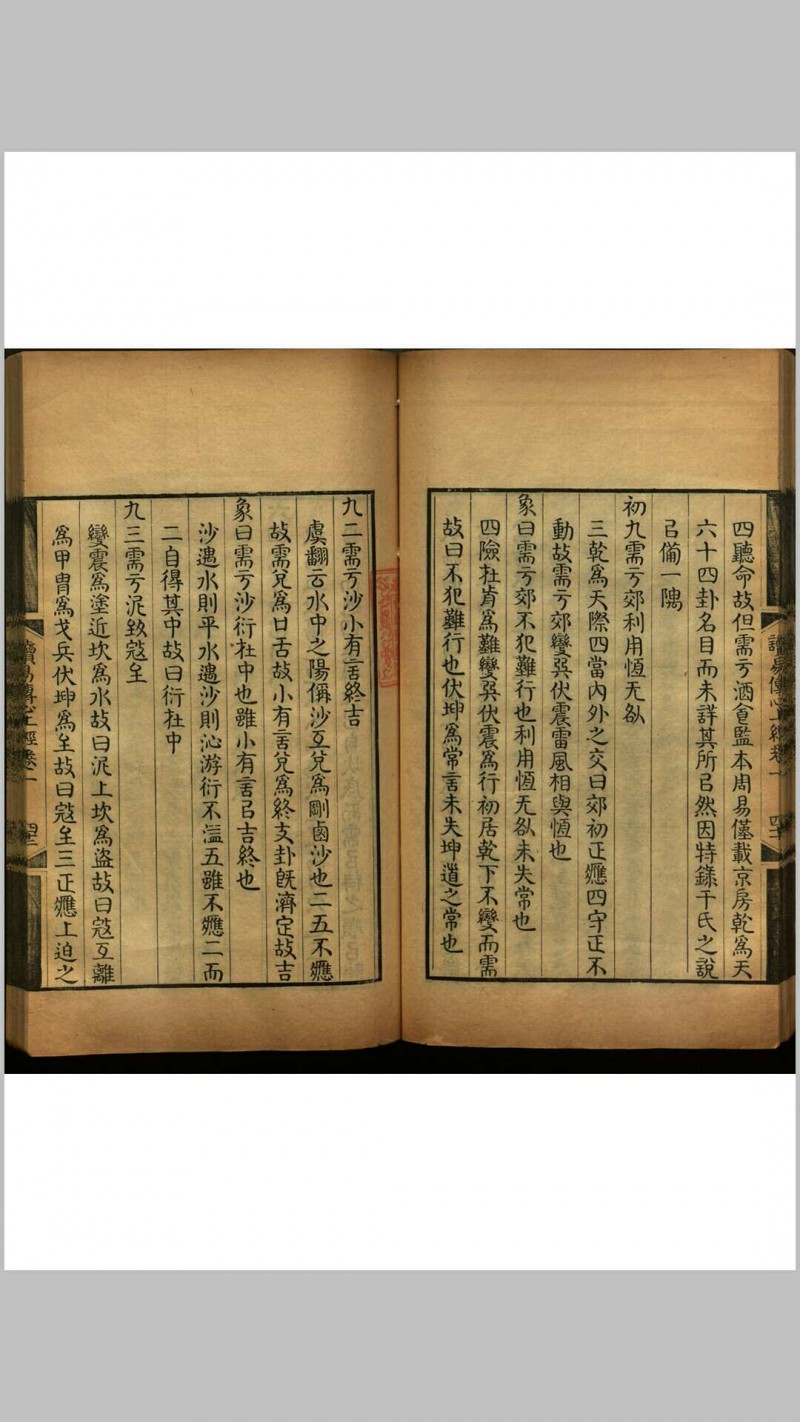 四聽命故但需亐酒食監本周易僅載京房乾爲天
六十四卦名目而未詳其所㠯然因特錄干氏之說
㠯備一隅
初九需亐郊利用恆无咎
三乾爲天際四當內外之交曰郊初正應四守正不
動故需亐郊變巽伏震雷風相與恆也
象曰需亐郊不犯難行也利用恆无咎未失常也
四險在前爲難變巽伏震爲行初居乾下不變而需
故曰不犯難行也伏坤爲常言未失坤道之常也
讀易傳心上經卷一
九二需亐沙小有言終吉
虞翻云水中之陽稱沙互兌爲剛鹵沙也二五不應
故需兌爲口舌故小有言兌爲終支卦旣濟定故吉
象曰需亐沙衍在中也雖小有言㠯吉終也
沙遇水則平水遇沙則沁游衍不溢五雖不應二而
二自得其中故曰衍在中
九三需亐泥致寇至
變震爲塗近坎爲水故曰泥上坎爲盜故曰寇互離
爲甲冑爲戈兵伏坤爲至故曰寇至三正應上迫之
讀易傳心上經卷一